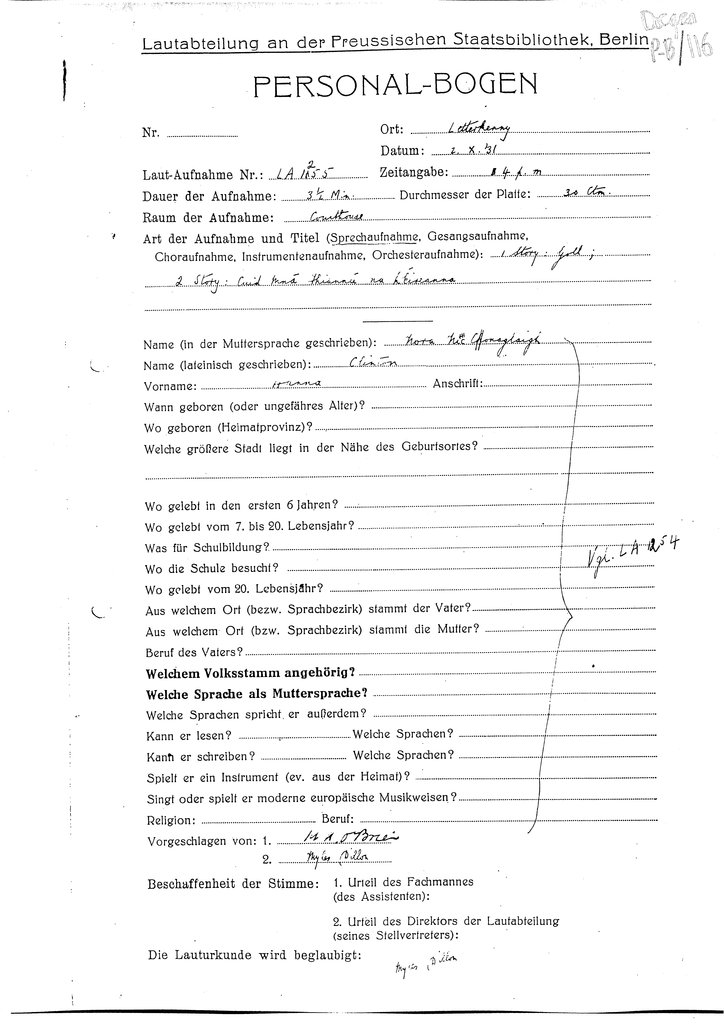 Doegen
P-B/116
Lautabteilung an der Preussischen Staatsbibliothek, Berlin
PERSONAL-BOGEN
Nr.
Ort: Letterkenny
Datum: 2. X. '31
Laut-Aufnahme Nr.: LA 1255 Zeitangabe: 4 p.m
Dauer der Aufnahme: 3½ Min. Durchmesser der Platte: 30 Ctm.
Raum der Aufnahme: Courthouse
Art der Aufnahme und Titel (Sprechaufnahme, Gesangsaufnahme,
Choraufnahme, Instrumentenaufnahme, Orchesteraufnahme): 1 Story: Goll;
2 Story: Cuid mná na
Name (in der Muttersprache geschrieben): Nora
Name (lateinisch geschrieben): Clinton
Vorname: Anschrift:
Wann geboren (oder ungefähres Alter)?
Wo geboren (Heimatprovinz)?
Welche größere Stadt liegt in der Nähe des Geburtsortes?
Wo gelebt in den ersten 6 Jahren?
Wo gelebt vom 7. bis 20. Lebensjahr?
Was für Schulbildung?
Wo die Schule besucht?
Wo gelebt vom 20. Lebensjahr?
Aus welchem Ort (bezw. Sprachbezirk) stammt der Vater?
Aus welchem Ort (bzw. Sprachbezirk) stammt die Mutter?
Beruf des Vaters?
Welchem Volksstamm angehörig?
Welche Sprache als Muttersprache?
Welche Sprachen spricht er außerdem?
Kann er lesen? Welche Sprachen?
Kann er schreiben? Welche Sprachen?
Spielt er ein Instrument (ev. aus der Heimat)?
Singt oder spielt er moderne europäische Musikweisen?
Religion: Beruf:
Vgl. LA 1254
Vorgeschlagen von: 1. M. A. O'Brien
2. Myles Dillon
Beschaffenheit der Stimme: 1. Urteil des Fachmannes
(des Assistenten):
2. Urteil des Direktors der Lautabteilung
(seines Stellvertreters):
Die Lauturkunde wird beglaubigt: Myles Dillon